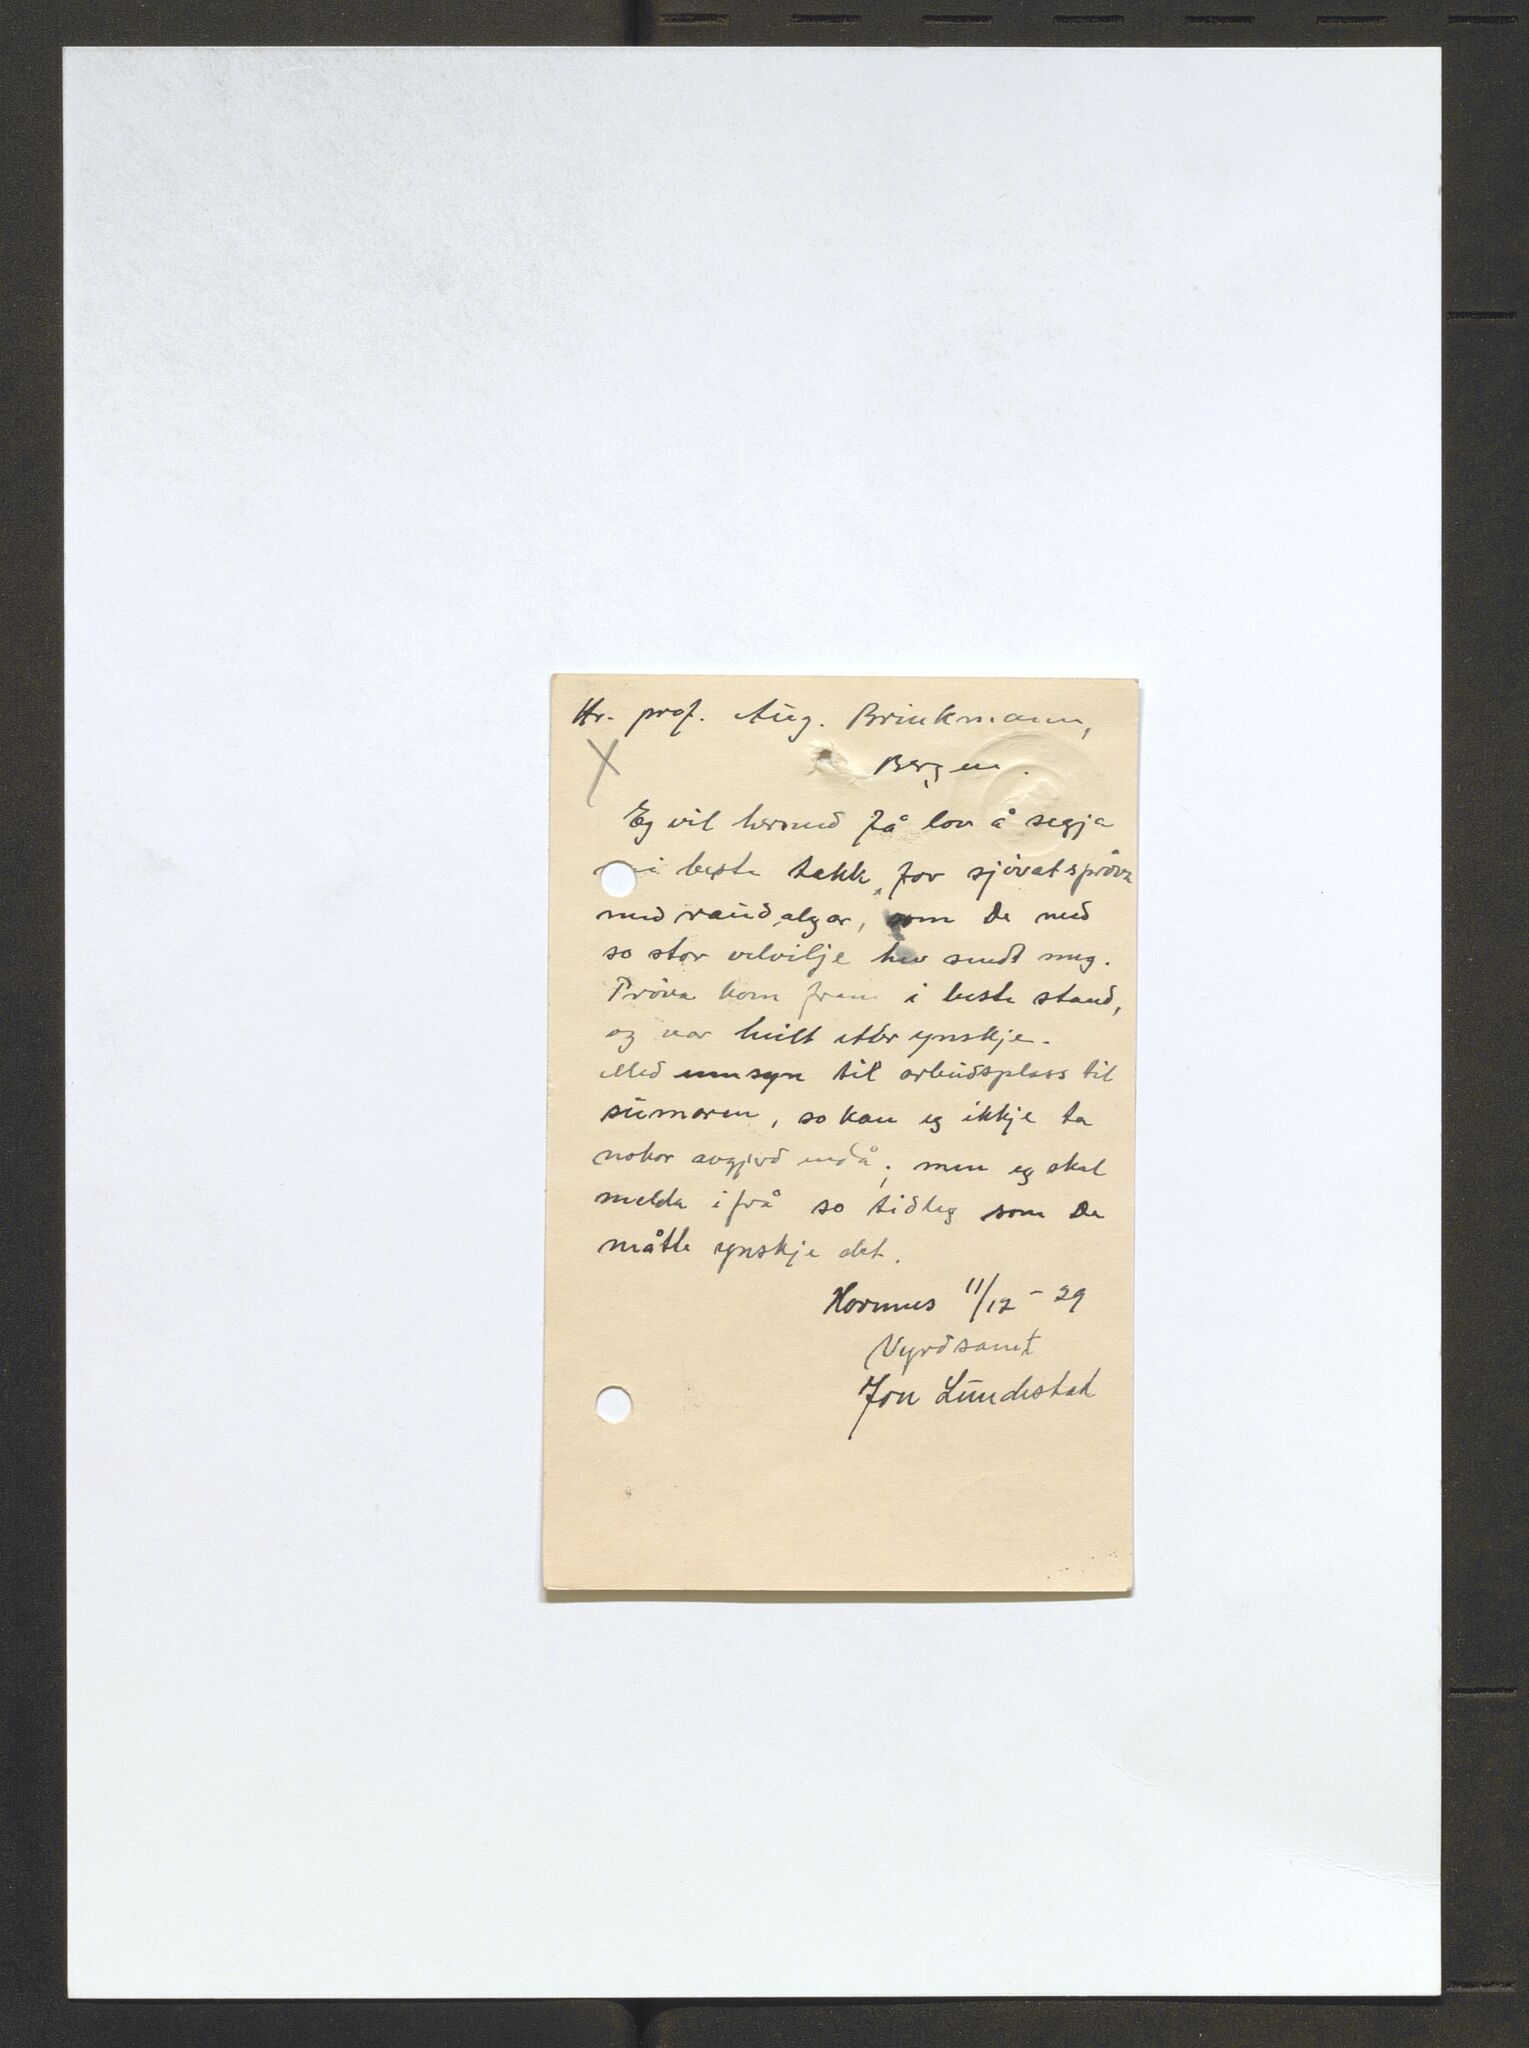 Hr. prof. Aug. Brinkmann,
Bergen.
Eg vil hermed få lov å segja
mi beste takk for sjövatspröva
med raudalgar, som De med
so stor velvilje hev sendt meg.
Pröva kom fram i beste stand,
og var heilt etter ynskje.
Med umsyn til arbeidsplass til
sumaren, so kan eg ikkje ta
nokor avgjerd endå; men eg skal
melda ifrå so tidleg som De
måtte ynskje det.
11/12 - 29
Vyrdsamt
Jon Lundestad